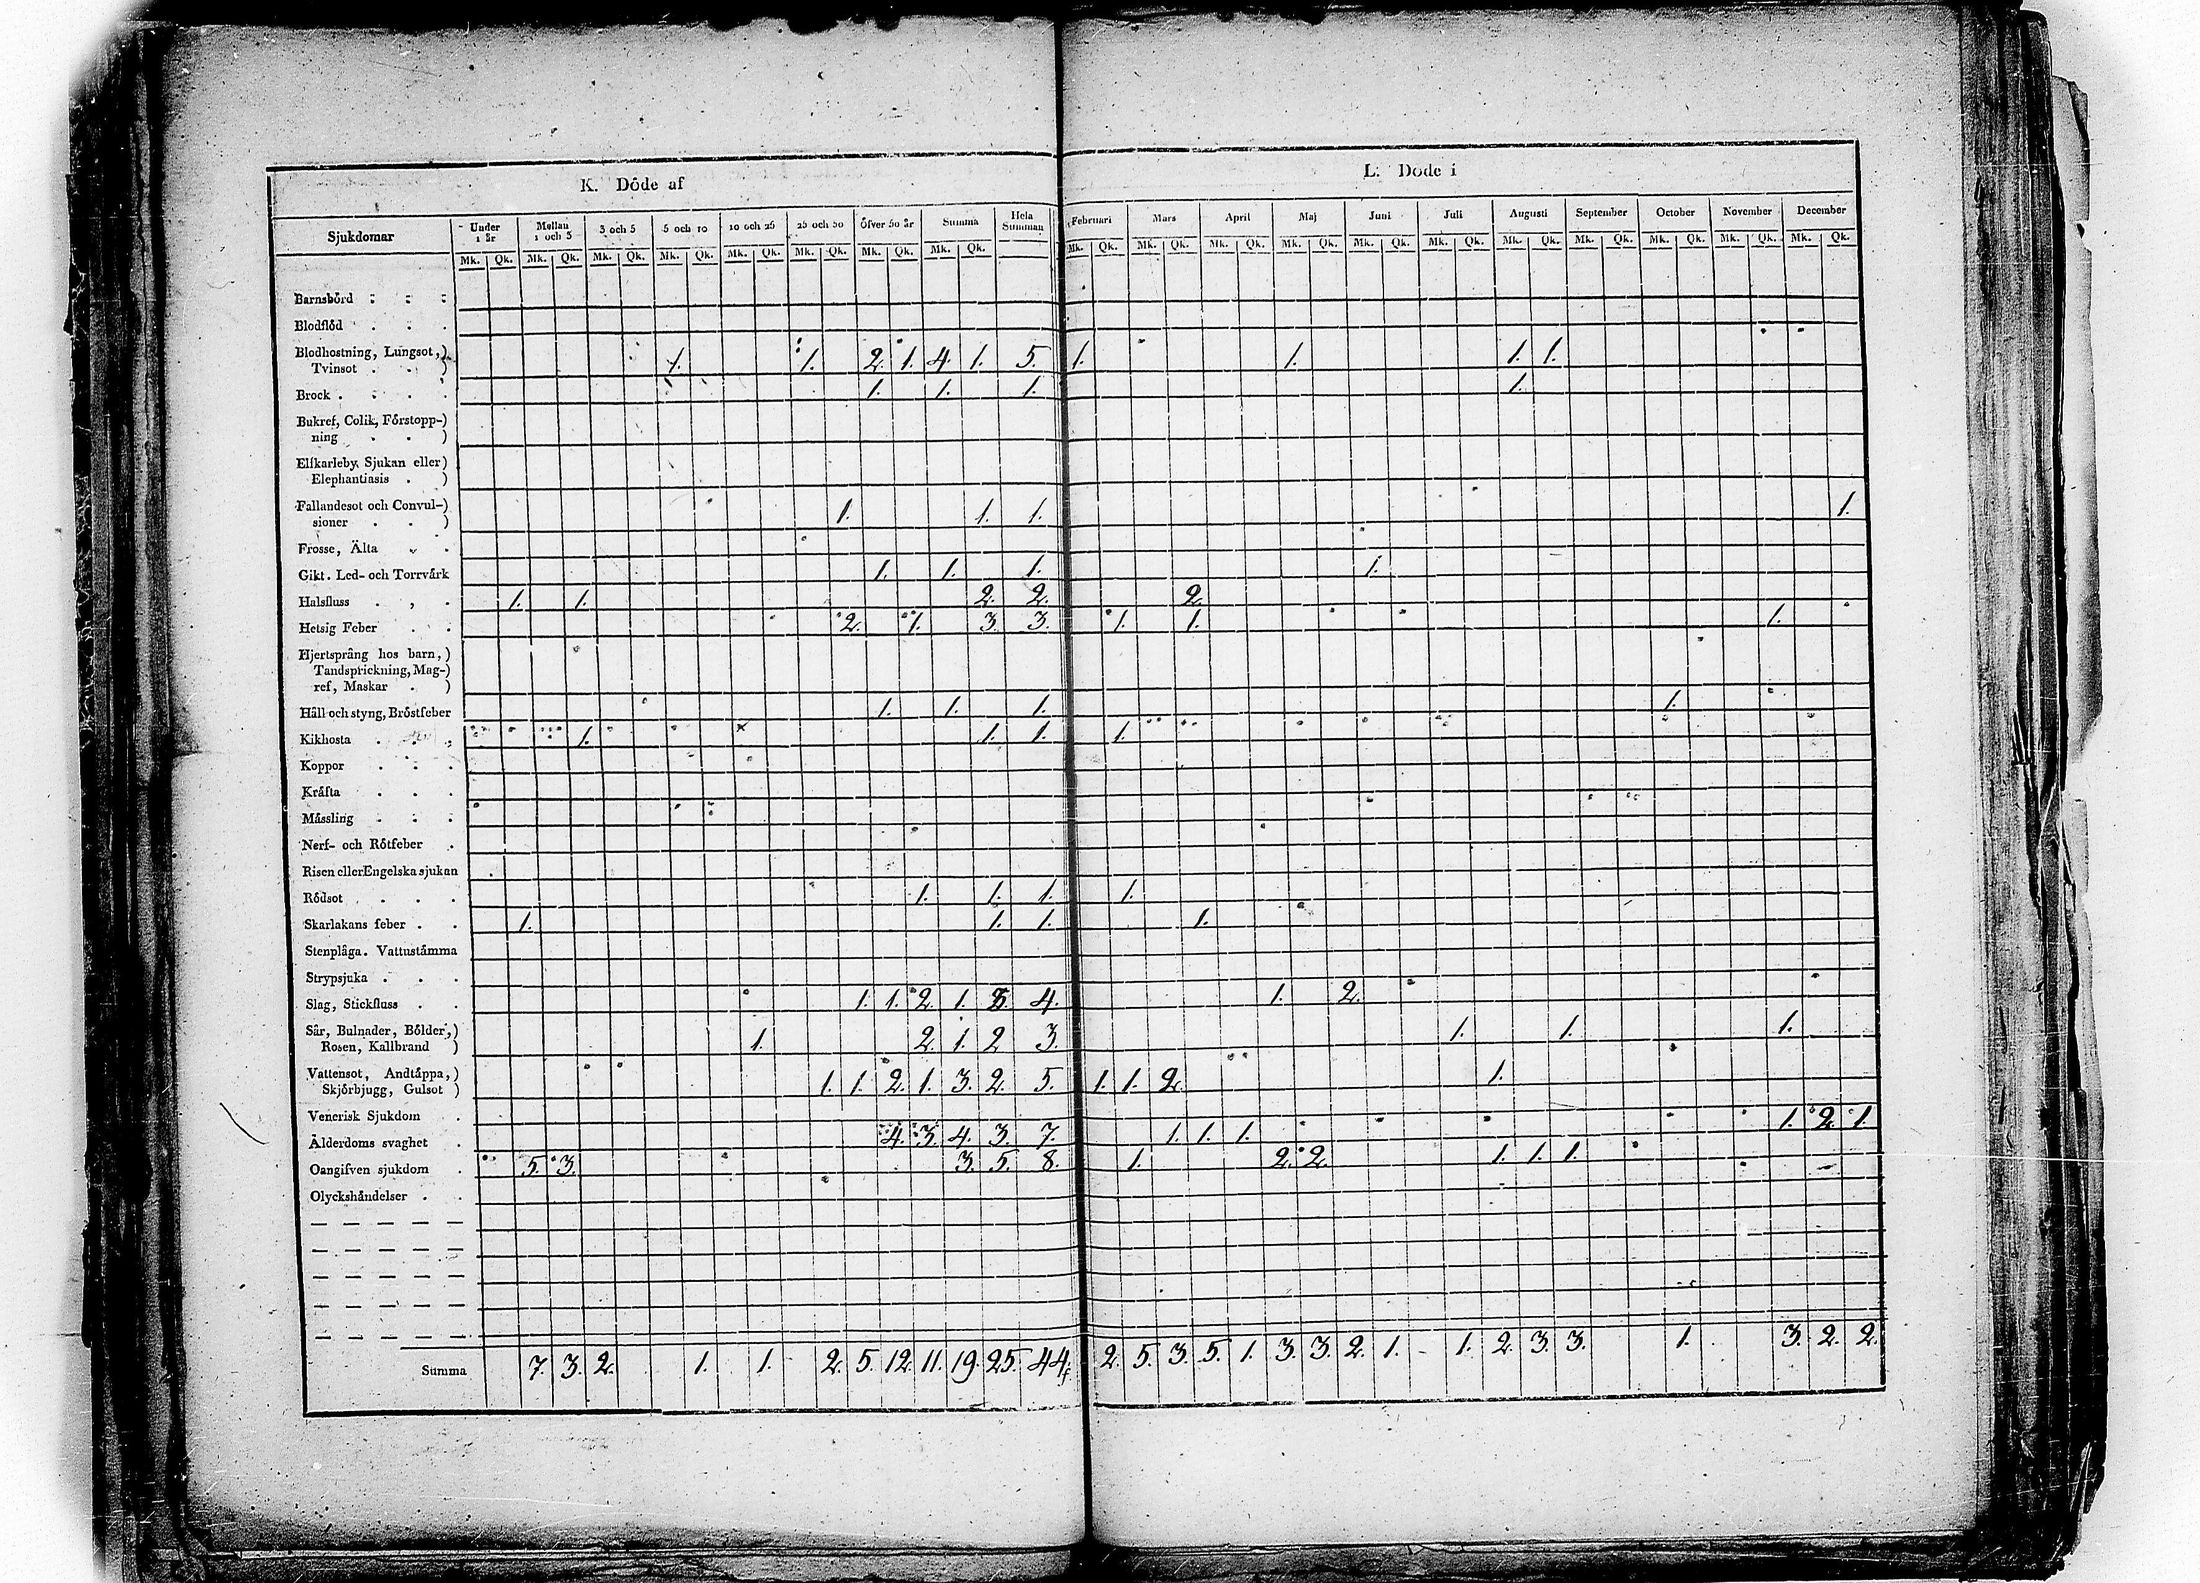 K. Döde af L. Döde i
Sjukdomar Under 1 år Mellan 1 och 3 3 och 5 5 och 10 10 och 25 25 och 50 Öfver 50 år Summa Hela Summan Februari Mars April Maj Juni Juli Augusti September October November December
Mk. Qk. Mk. Qk. Mk. Qk. Mk. Qk. Mk. Qk. Mk. Qk. Mk. Qk. Mk. Qk. Mk. Qk. Mk. Qk. Mk. Qk. Mk. Qk. Mk. Qk. Mk. Qk. Mk. Qk. Mk. Qk. Mk. Qk. Mk. Qk. Mk. Qk.
Barnsbörd
Blodflöd
Blodhostning, Lungsot,)
Tvinsot . . ) 1. 1. 2. 1. 4. 1. 5. 1. 1. 1. 1.
Brock . 1. 1. 1. 1.
Bukref, Colik, Förstopp-)
ning . . )
Elfkarleby, Sjukan eller)
Elephantiasis . )
Fallandesot och Convul-)
sioner . . ) 1. 1. 1. 1.
Frosse, Älta
Gikt. Led- och Torrvärk 1. 1. 1. 1.
Halsfluss 1. 1. 2. 2. 2.
Hetsig Feber 2. 1. 3. 3. 1. 1. 1.
Hjertsprång hos barn,)
Tandsprickning, Mag-)
ref, Maskar . )
Håll och styng, Bröstfeber 1. 1. 1. 1.
Kikhosta 1. 1. 1. 1.
Koppor
Kräfta
Mässling
Nerf- och Rötfeber
Risen eller Engelska sjukan
Rödsot 1. 1. 1. 1.
Skarlakans feber 1. 1. 1. 1.
Stenplåga. Vattustämma
Strypsjuka
Slag, Stickfluss 1. 1. 2. 1. 3. 4. 1. 2.
Sår, Bulnader, Bölder,)
Rosen, Kallbrand ) 1. 2. 1. 2. 3. 1. 1. 1.
Vattensot, Andtäppa,)
Skjörbjugg, Gulsot ) 1. 1. 2. 1. 3. 2. 5. 1. 1. 2. 1.
Venerisk Sjukdom
Ålderdoms svaghet 4. 3. 4. 3. 7. 1. 1. 1. 1. 2. 1.
Oangifven sjukdom 5. 3. 3. 5. 8. 1. 2. 2. 1. 1. 1.
Olyckshändelser
Summa 7. 3. 2. 1. 1. 2. 5. 12. 11. 19. 25. 44. 2. 5. 3. 5. 1. 3. 3. 2. 1. 1. 2. 3. 3. 1. 3. 2. 2.